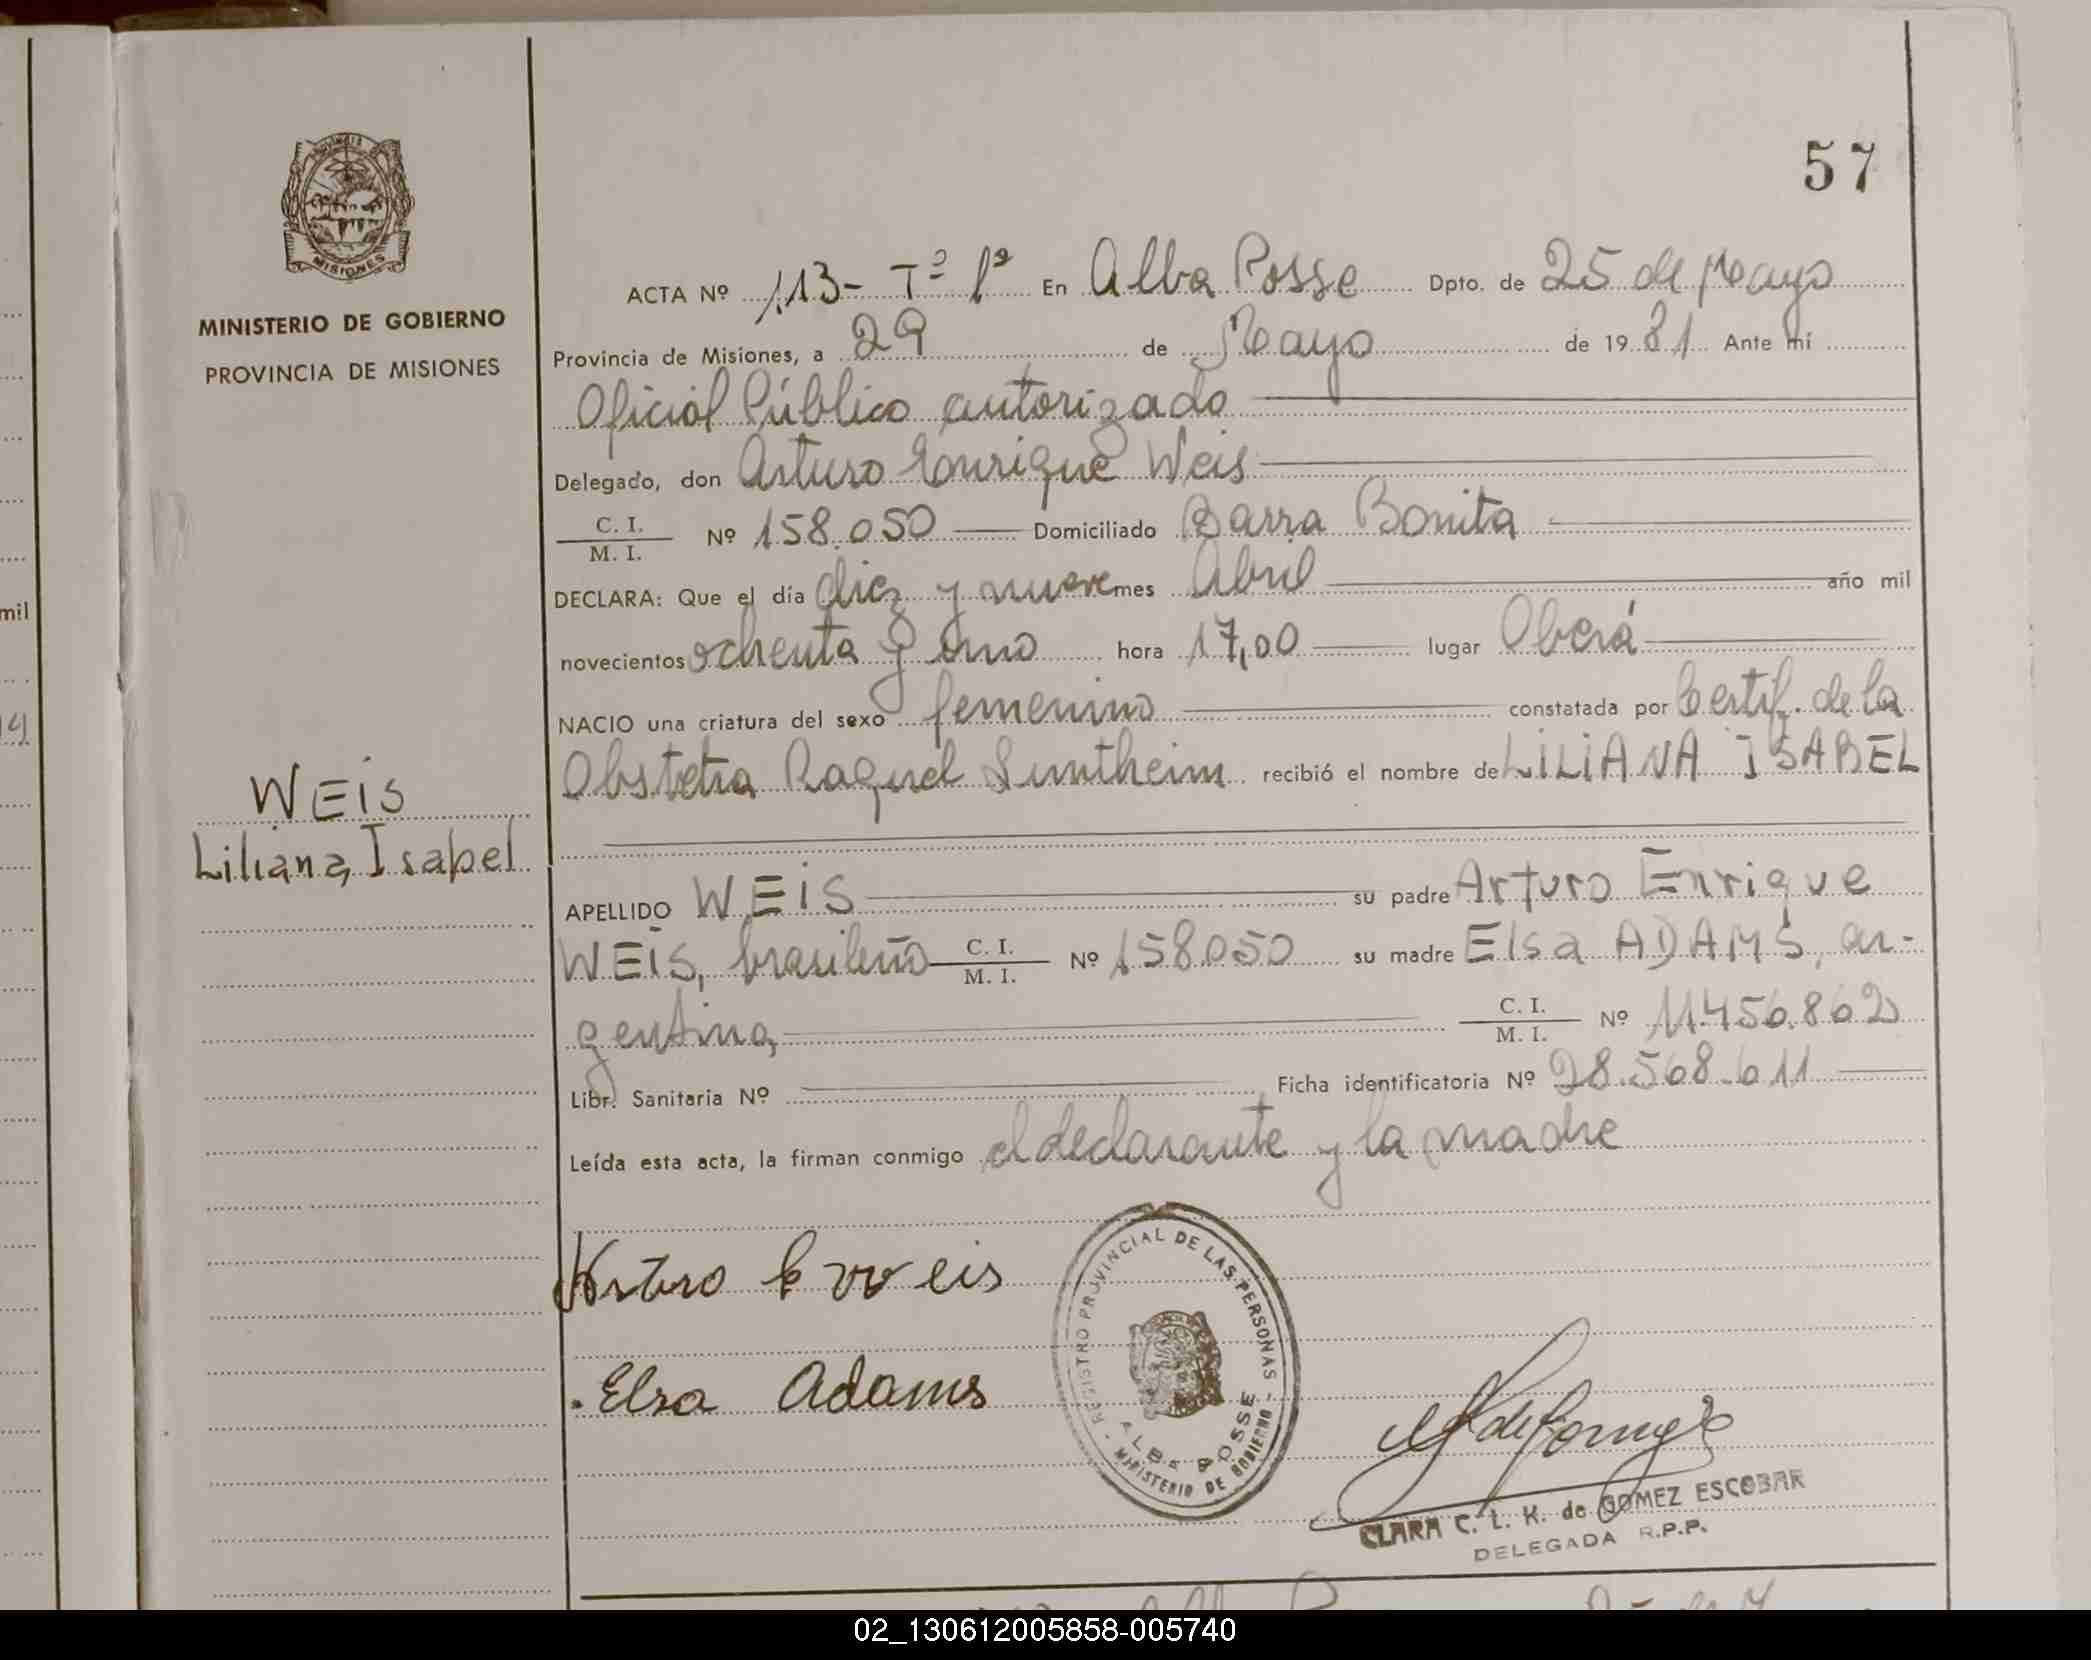 57
MISIONES
MINISTERIO DE GOBIERNO
PROVINCIA DE MISIONES
ACTA Nº 113- Tº 1º En Alba Posse Dpto. de 25 de Mayo
Provincia de Misiones, a 29 de Mayo de 1981 Ante mí
Oficial Público autorizado
Delegado, don Arturo Enrique Weis
C. I.
M. I.
Nº 158.050 Domiciliado Barra Bonita
DECLARA: Que el día diez y nueve mes Abril año mil
novecientos ochenta y uno hora 17,00 lugar Oberá
NACIO una criatura del sexo femenino constatada por Certif. de la
Obstetra Raquel recibió el nombre de LILIANA ISABEL
WEIS
Liliana Isabel
APELLIDO WEIS su padre Arturo Enrique
WEIS, brasileño C. I. M. I. Nº 158050 su madre Elsa ADAMS, ar-
gentina C. I. M. I. Nº 11.456.862
Libr. Sanitaria Nº Ficha identificatoria Nº 28.568.611
Leída esta acta, la firman conmigo el declarante y la madre
Arturo E Weis
Elsa Adams
REGISTRO PROVINCIAL DE LAS PERSONAS
ALBA POSSE
MINISTERIO DE GOBIERNO
CLARA C. L. K. de GOMEZ ESCOBAR
DELEGADA R.P.P.
mil
02_130612005858-005740